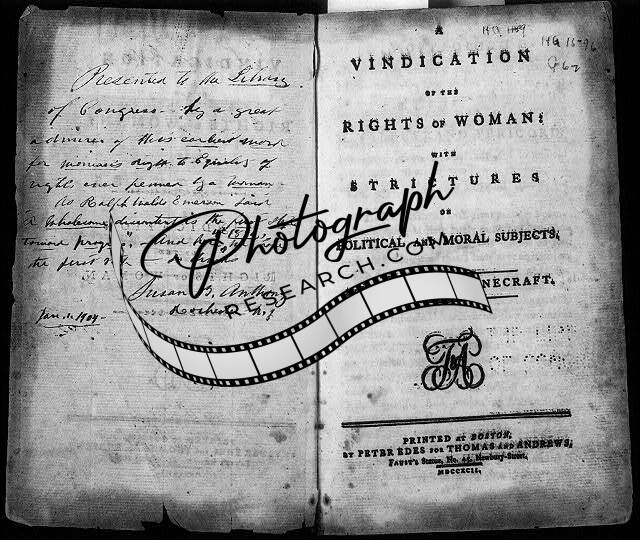 Presented to the Library
of Congress by a great
admirer of this earliest work
for woman's right to Equality of
rights ever penned by a woman
As Ralph Waldo Emerson said
"A wholesome discontent is the first step
toward
the first
Susan B. Anthony
Rochester N.Y.
Jan. 1. 1904
HQ 1596
A
VINDICATION
OF THE
RIGHTS OF WOMAN:
WITH
STRICTURES
ON
POLITICAL AND MORAL SUBJECTS.
PRINTED AT BOSTON,
BY PETER EDES FOR THOMAS AND ANDREWS,
FAUST'S Statue, No. 45, Newbury-Street,
MDCCXCII.
Photograph
RESEARCH.COM